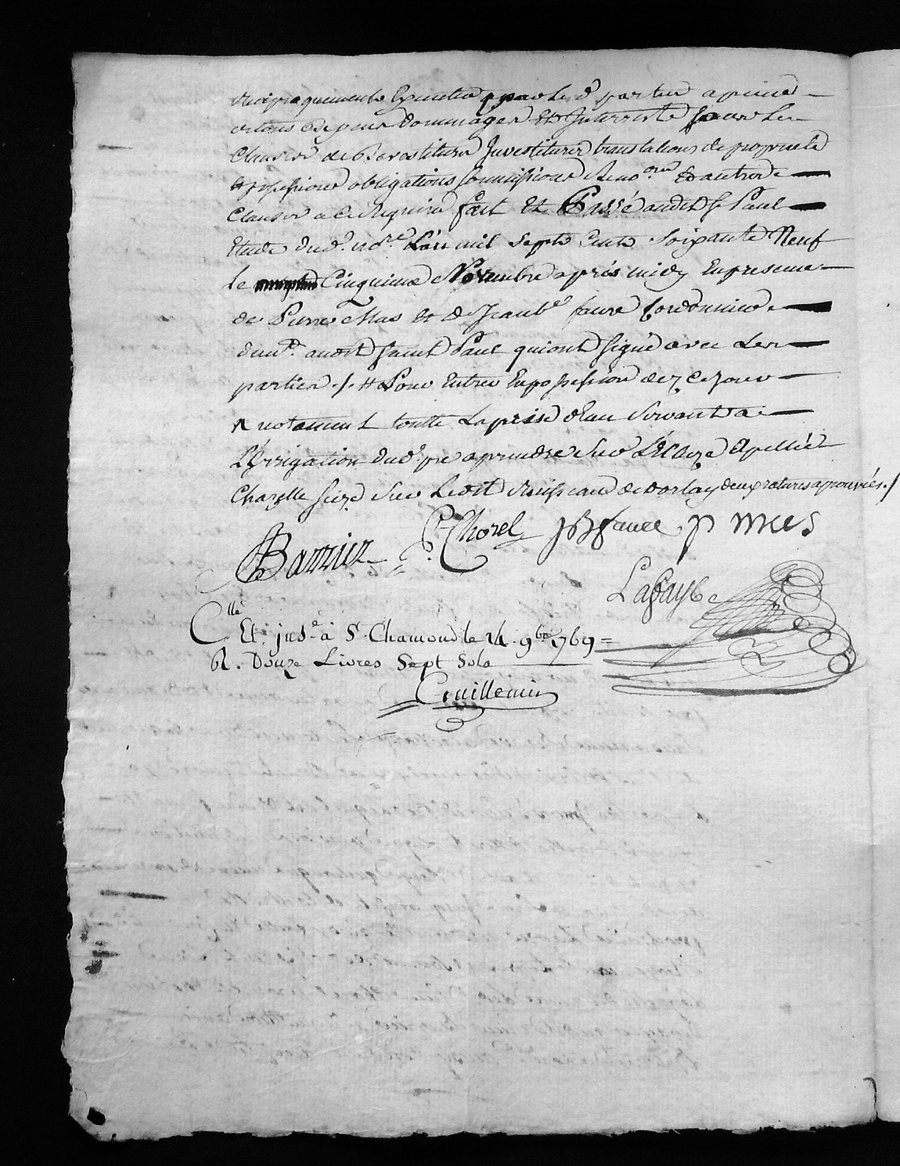 reciproquement Executer par les d. parties a peine
de tous depens dommages Et Interrets sous les
Clauses de devestiture Investiture translations de propriete
Et possession obligations soumissions Renon.on & autres
Clauses a ce Requises fait et Passé audit St Paul
Etude dud. No.re L'an mil sept Cents Soixante Neuf
le Cinquieme Novembre apres midy En presence
de Pierre Mas et de Jean b.te faure Cordonnier
dem.t audit Saint Paul qui ont signé avec les
parties ./. # Pour Entrer En possession dez ce jour
^ notamment toutte La prise d'eau servant a
L'irrigation dud. pré a prendre sur L'Ecluze apellée
Chazelle scize sur Ledit Ruisseau de dorlay deux ratures aprouvées ./
Barrier P. Chorel JB faure p mas
Lafaye
C.llé Et ins.é à St Chamond le 14 9bre 1769 =
R. Douze Livres Sept Sols